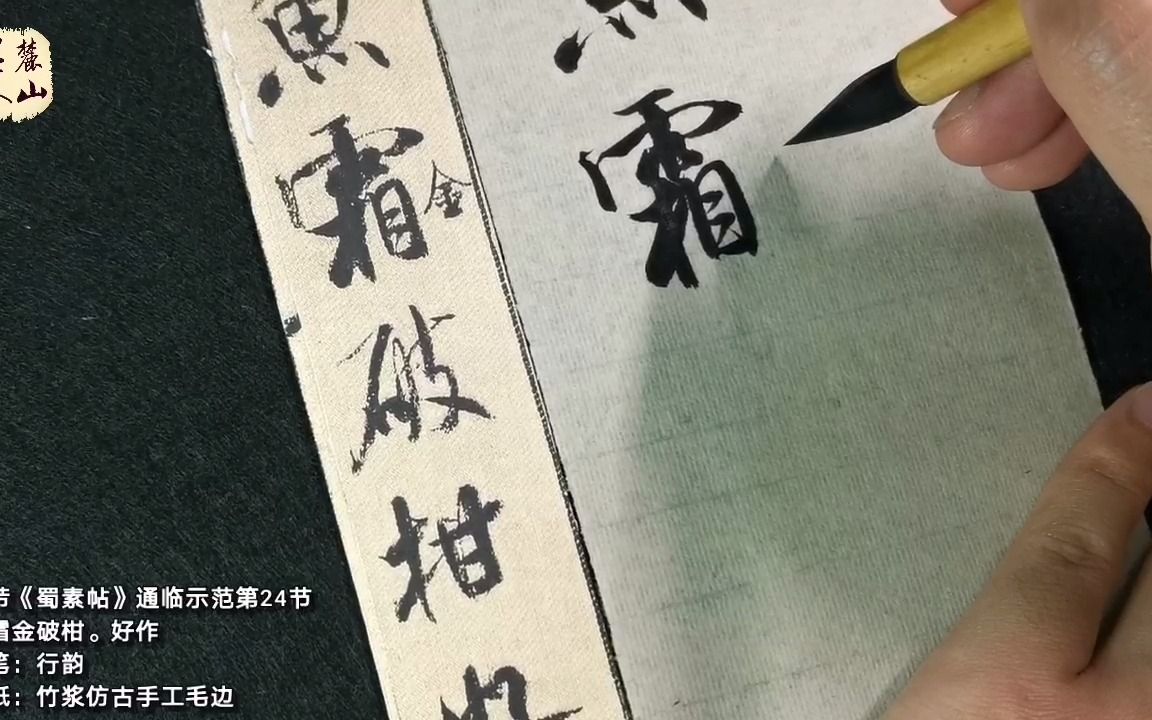 霜金
破
柑
霜
麓
山
《蜀素帖》通临示范第24节
金破柑。好作
：行韵
：竹浆仿古手工毛边